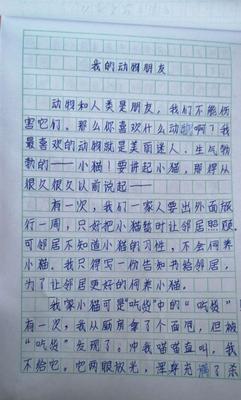 我的动物朋友
动物和人类是朋友，我们不能伤
害它们。那么你喜欢什么动物啊？我
最喜欢的动物就是美丽迷人、生气勃
勃的——小猫！要讲起小猫，那得从
很久很久以前说起——
有一次，我们一家人要出外面旅
行一周，只好把小猫暂时让邻居照顾，
可邻居不知道小猫的习性，不会饲养
小猫。我只得写一份告知书给邻居，
为了让邻居更好的饲养小猫。
我家小猫可是“吃货”中的“吃货”
有一次，我从厨房拿了个面包，但被
“吃货”发现了。冲我喵喵直叫，我
不给它。它两眼放光，浑身充满了杀